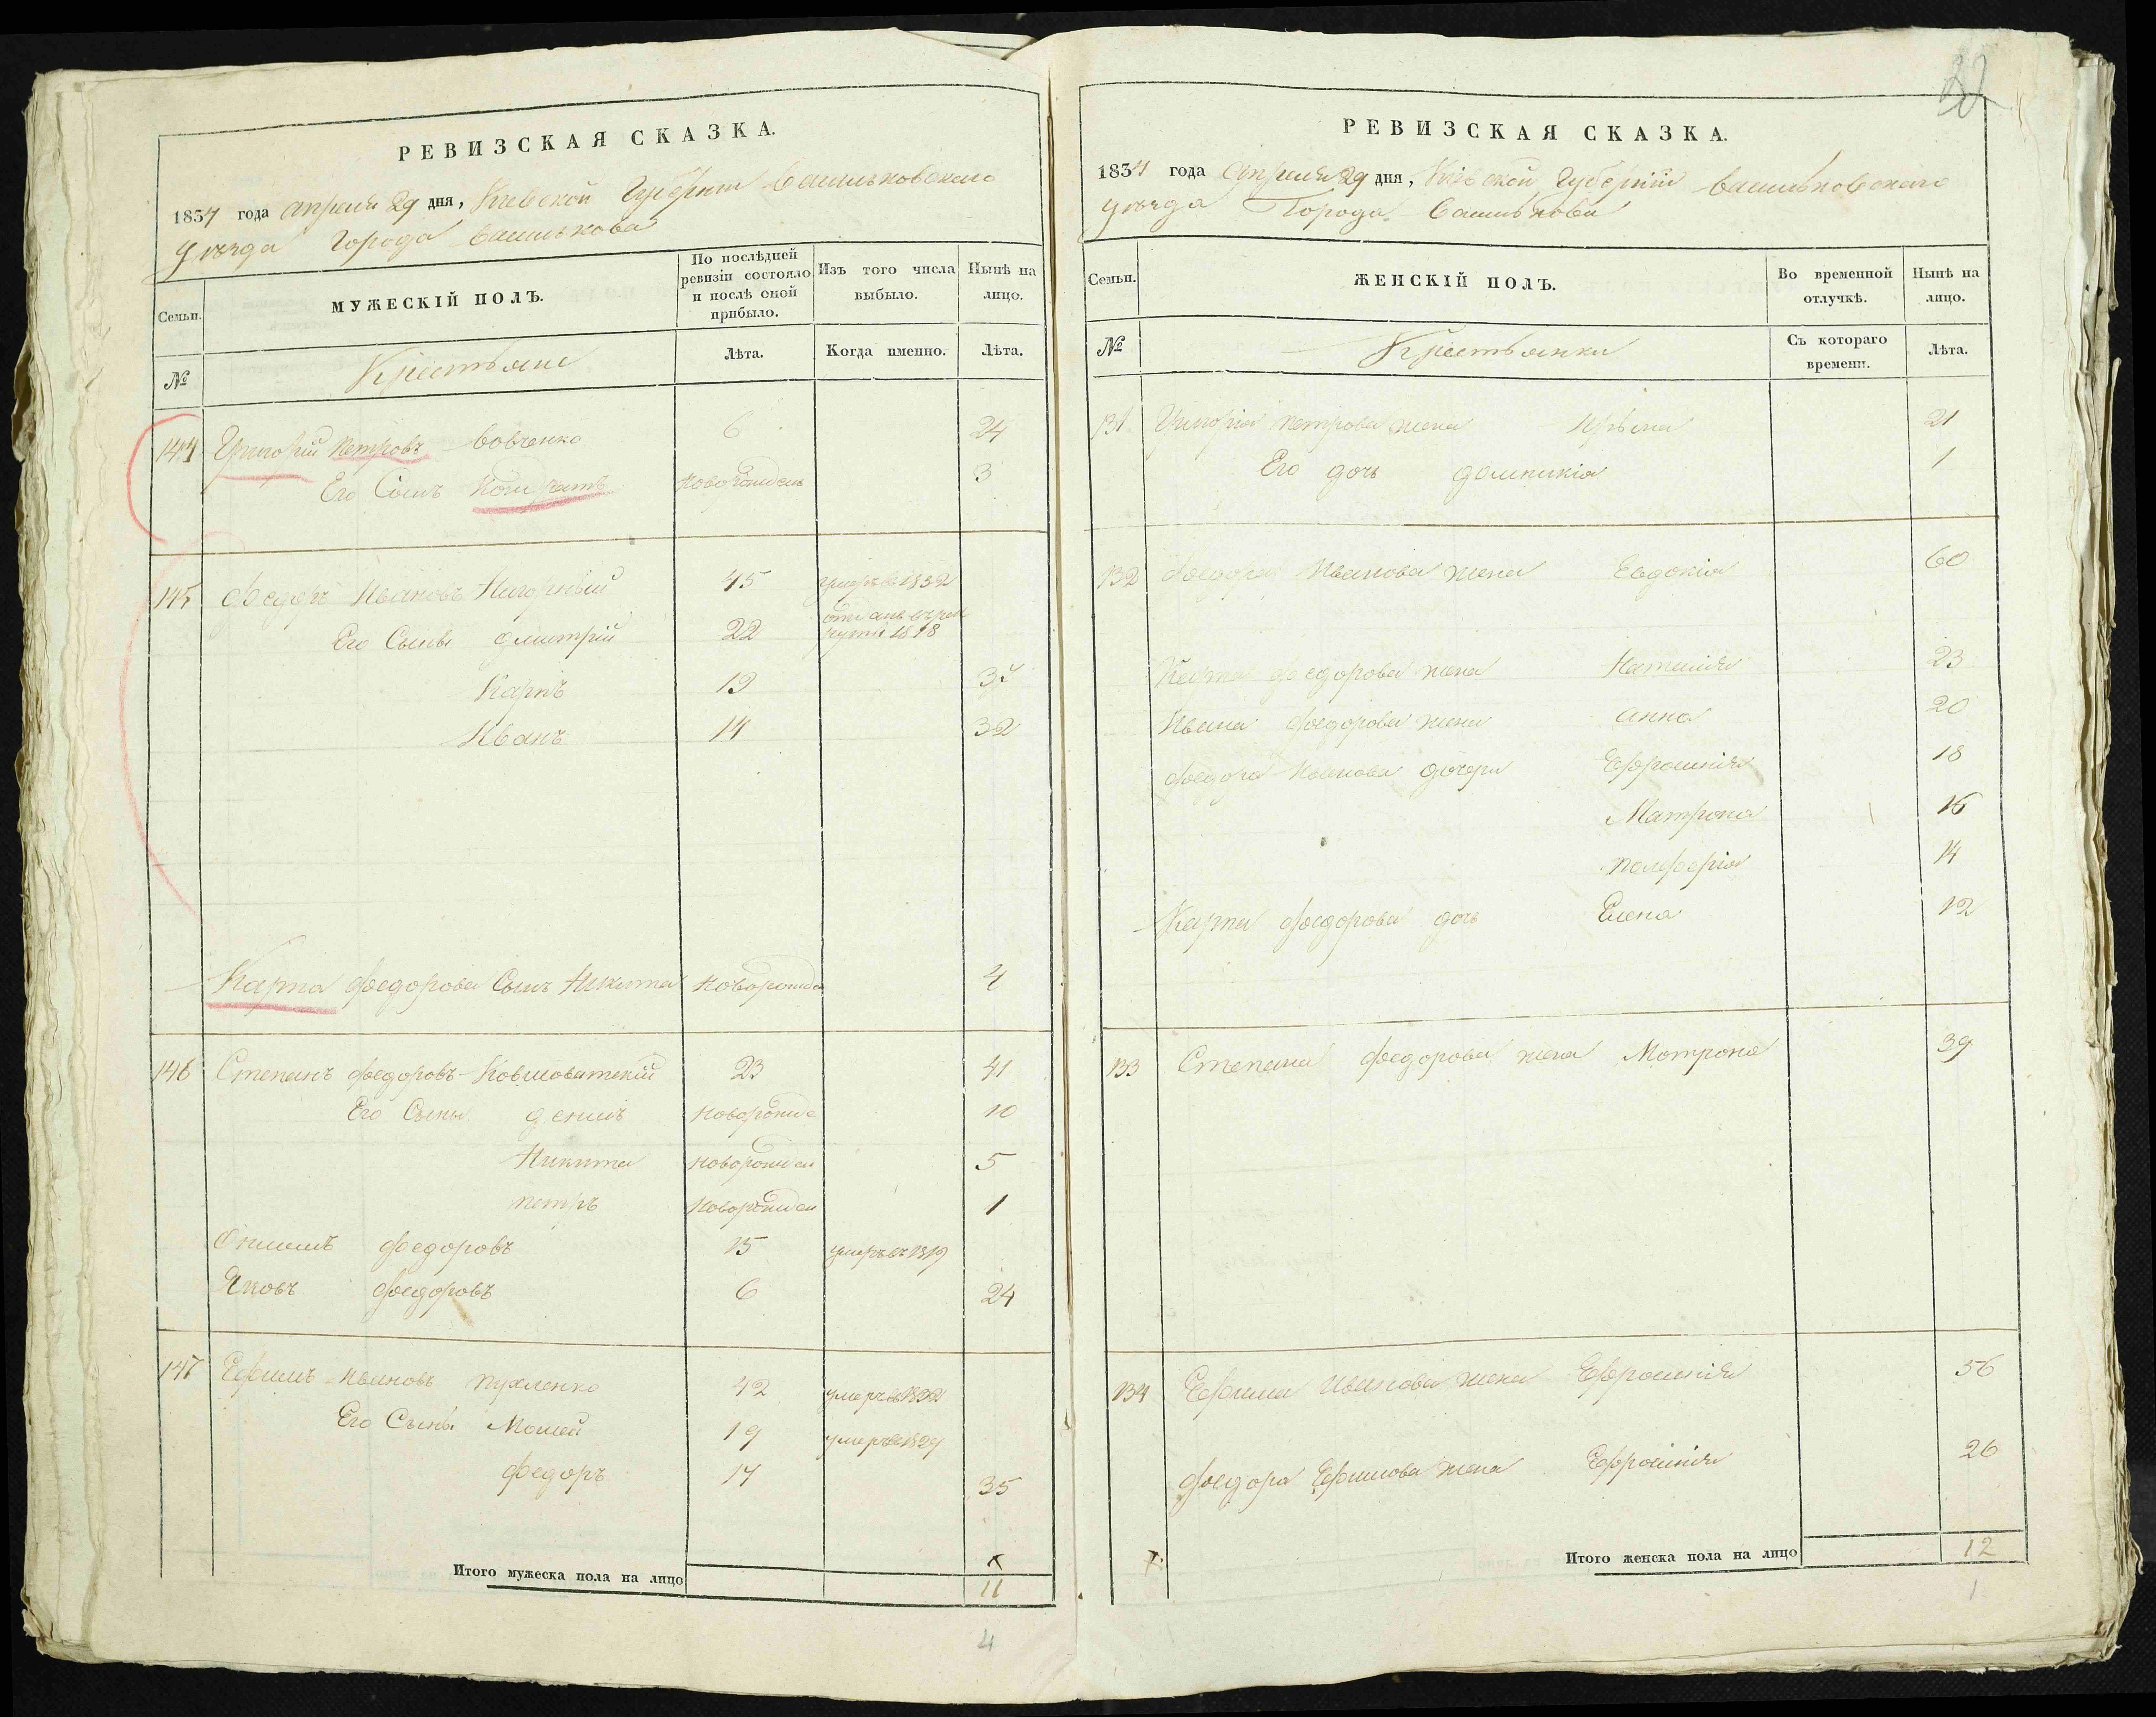 РЕВИЗСКАЯ СКАЗКА.
1834 года апреля 29 дня, Киевской Губерніи Васильковскаго
уѣзда Города Василькова
Семьи.
МУЖЕСКІЙ ПОЛЪ.
По послѣдней ревизіи состояло и послѣ оной прибыло.
Изъ того числа выбыло.
Нынѣ на лицо.
№
Крестьяне
Лѣта.
Когда именно.
Лѣта.
144 Григорій Петровъ Вовченко 6 24
Его Сынъ новорожденъ 3
145 Федоръ Ивановъ Нагорный 45 умеръ въ 1832
Его Сыны Дмитрій 22 отданъ въ рекруты 1818
Карпъ 19
Иванъ 14 32
Карпа Федорова Сынъ Никита Новорожден 4
146 Степанъ Федоровъ Ковшоватскій 23 41
Его Сыны Денисъ новорожде 10
Никита новорожден 5
Петръ новорожден 1
Онисимъ Федоровъ 15 умеръ въ 1819
Яковъ Федоровъ 6 24
147 Ефимъ Ивановъ Пухленко 42 умеръ въ 1832
Его Сыны Мосей 19 умеръ въ 1829
Федоръ 17 35
Итого мужеска пола на лицо
11
4
РЕВИЗСКАЯ СКАЗКА.
1834 года апреля 29 дня, Кіевской Губерніи Васильковскаго
уѣзда Города Василькова
Семьи.
ЖЕНСКІЙ ПОЛЪ.
Во временной отлучкѣ.
Нынѣ на лицо.
№
Крестьянки
Съ котораго времени.
Лѣта.
131 Григорія Петрова жена Ирына 21
Его дочь Домникія 1
132 Федора Иванова жена Евдокія 60
Карпа Федорова жена Наталія 23
Ивана Федорова жена Анна 20
Федора Иванова дочери Ефросинія 18
Матрона 16
14
Карпа Федорова дочь Елена 12
133 Степана Федорова жена Мотрона 39
134 Ефима Иванова жена Ефросинія 56
Федора Ефимова жена Ефросинія 26
Итого женска пола на лицо
12
1